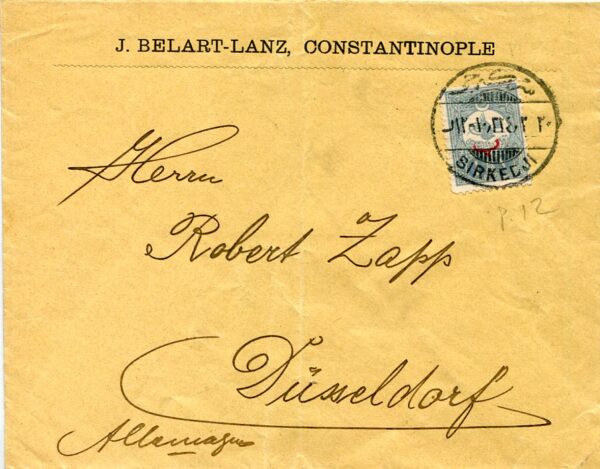 J. BELART-LANZ, CONSTANTINOPLE
SIRKEDJI
P. 12
Herrn
Robert Zapp
Düsseldorf
Allemagne